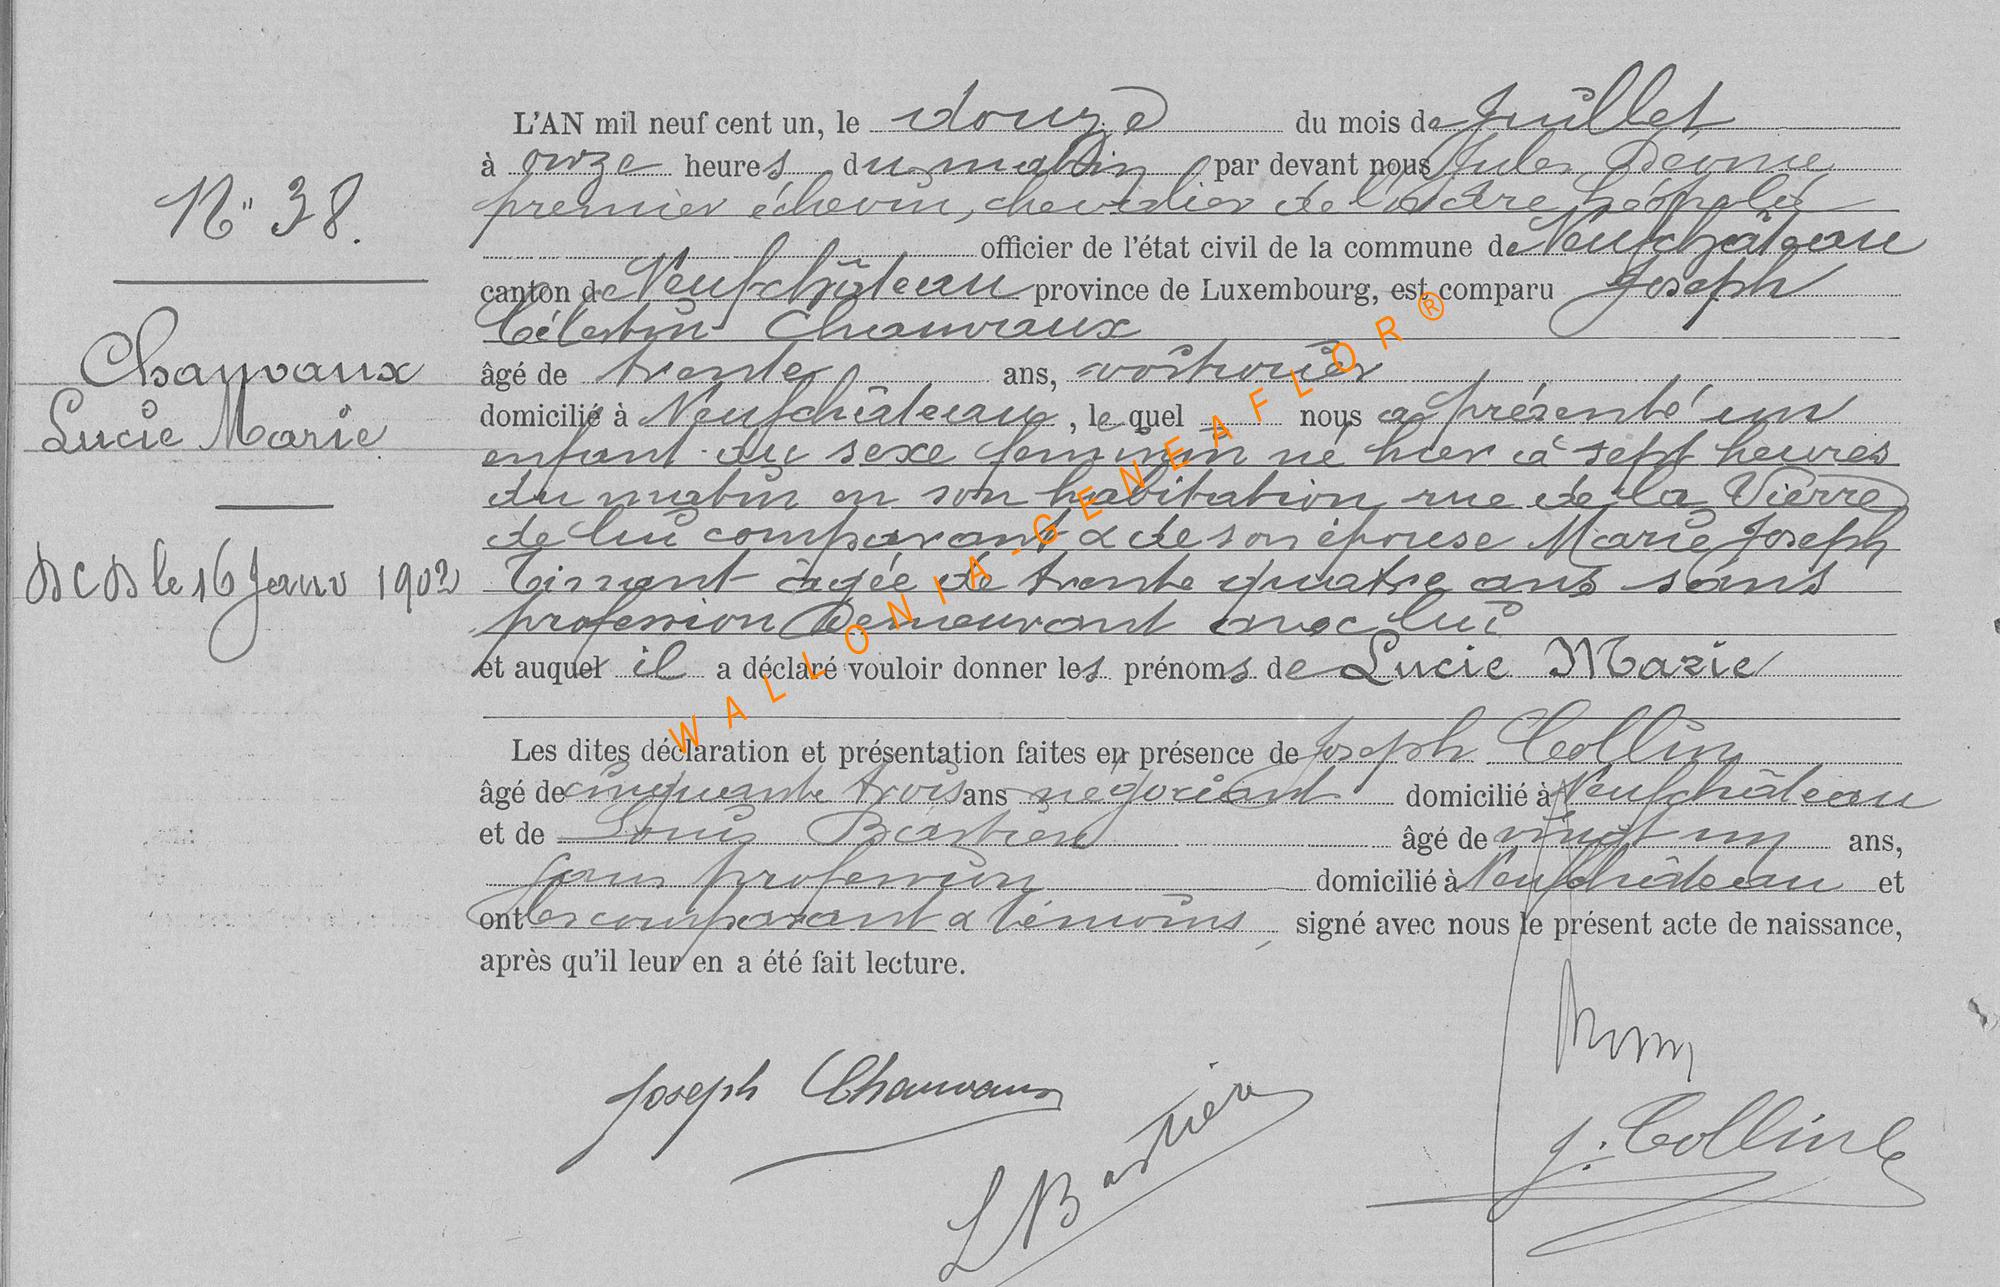 N° 38.
Chauvaux
Lucie Marie
DCD le 16 Janv 1902
L'AN mil neuf cent un, le douze du mois de Juillet
à onze heures du matin par devant nous Jules
premier échevin, chevalier de l'ordre Léopold
officier de l'état civil de la commune de Neufchâteau
canton de Neufchâteau province de Luxembourg, est comparu Joseph
Célestin Chauvaux
âgé de trente ans, voiturier
domicilié à Neufchâteau, le quel nous a présenté un
enfant du sexe féminin né hier à sept heures
du matin en son habitation rue de la Vierre
de lui comparant & de son épouse Marie Joseph
âgée de trente quatre ans sans
profession demeurant avec lui
et auquel il a déclaré vouloir donner les prénoms de Lucie Marie
Les dites déclaration et présentation faites en présence de Joseph Collin
âgé de cinquante trois ans négociant domicilié à Neufchâteau
et de Louis Bastien âgé de vingt un ans,
sans profession domicilié à Neufchâteau et
ont les comparant & témoins, signé avec nous le présent acte de naissance,
après qu'il leur en a été fait lecture.
Joseph Chauvaux
L Bastien
J. Collin
WALLONIA-GENEAFLOR®